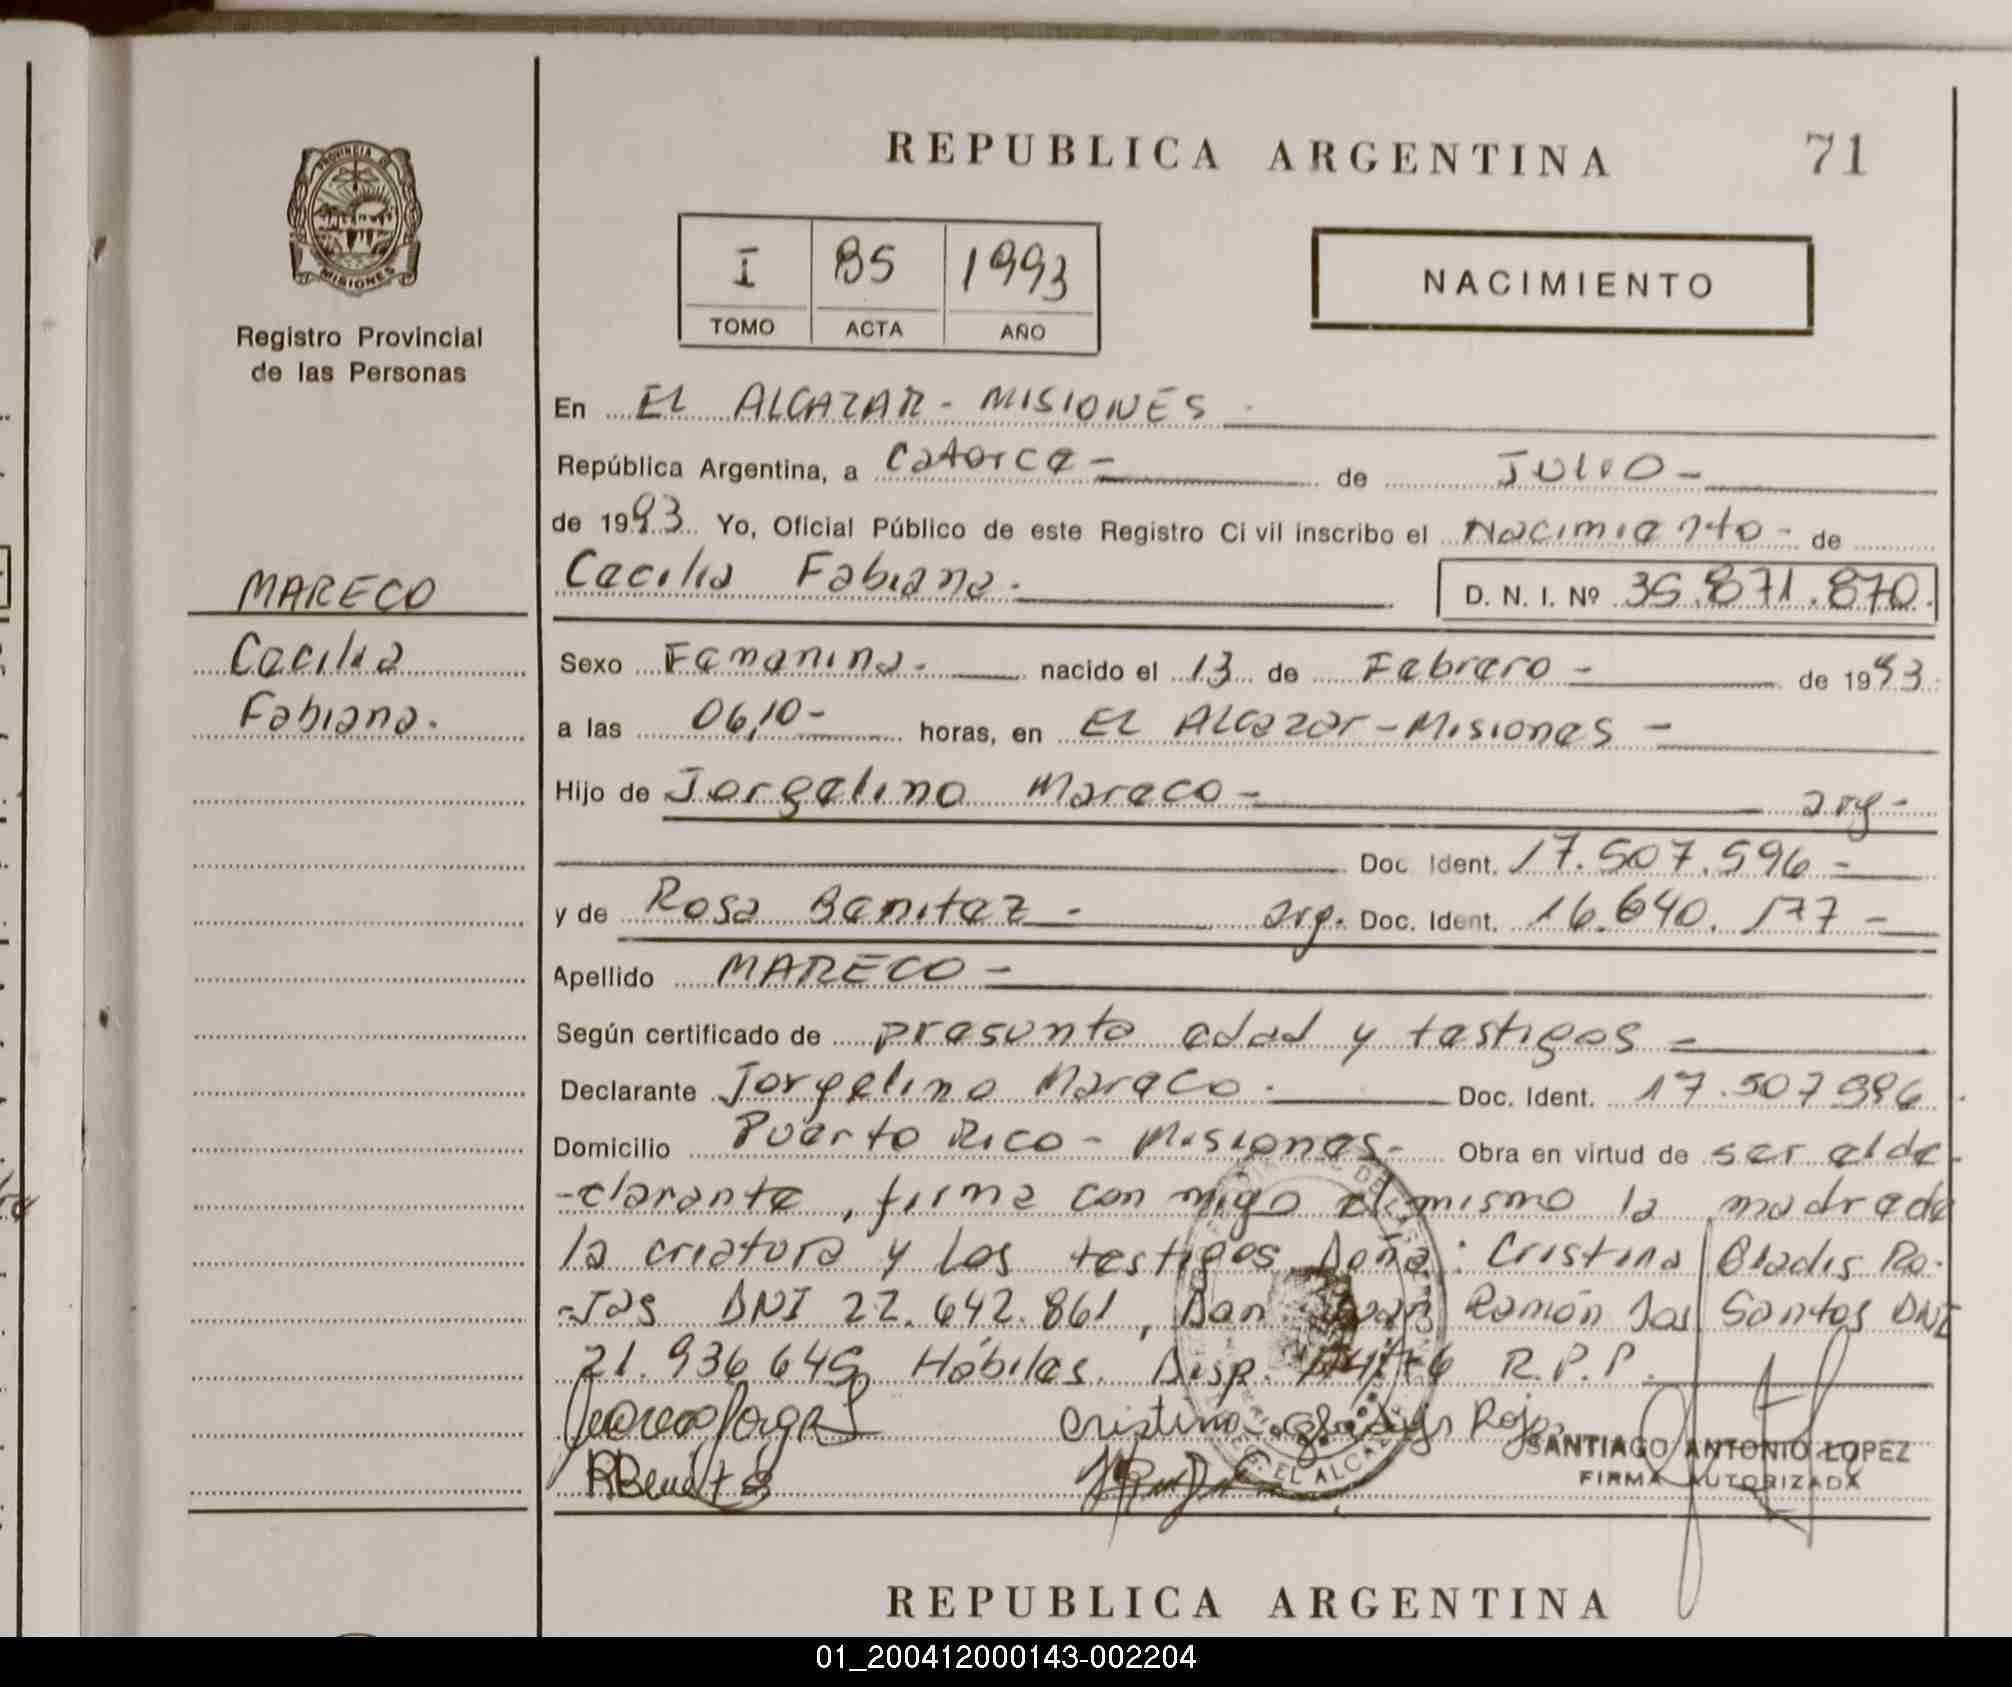 REPUBLICA ARGENTINA 71
PROVINCIA DE MISIONES
Registro Provincial
de las Personas
I 85 1993
TOMO ACTA AÑO
NACIMIENTO
En EL ALCAZAR - MISIONES
República Argentina, a Catorce - de Julio -
de 1993 Yo, Oficial Público de este Registro Civil inscribo el Nacimiento - de
Cecilia Fabiana. D. N. I. Nº 35.871.870.
MARECO
Cecilia
Fabiana.
Sexo Femenina. nacido el 13 de Febrero - de 1993
a las 06,10 - horas, en EL Alcazar - Misiones -
Hijo de Jorgelino Mareco - arg -
Doc Ident. 17.507.596 -
y de Rosa Benitez - arg. Doc. Ident. 16.640.177 -
Apellido MARECO -
Según certificado de presunta edad y testigos -
Declarante Jorgelino Mareco. Doc. Ident. 17.507596
Domicilio Puerto Rico - Misiones - Obra en virtud de ser el de
-clarante, firma con migo el mismo la madre de
la criatura y los testigos Doña: Cristina Gladis Ro-
-jas DNI 22.642.861, Don Juan Ramón Dos Santos DNI
21.936645 Hábiles. Disp. R.P.P.
Cristina Gladys Rojas
RBenitez
EL ALCAZAR
SANTIAGO ANTONIO LOPEZ
FIRMA AUTORIZADA
REPUBLICA ARGENTINA
01_200412000143-002204